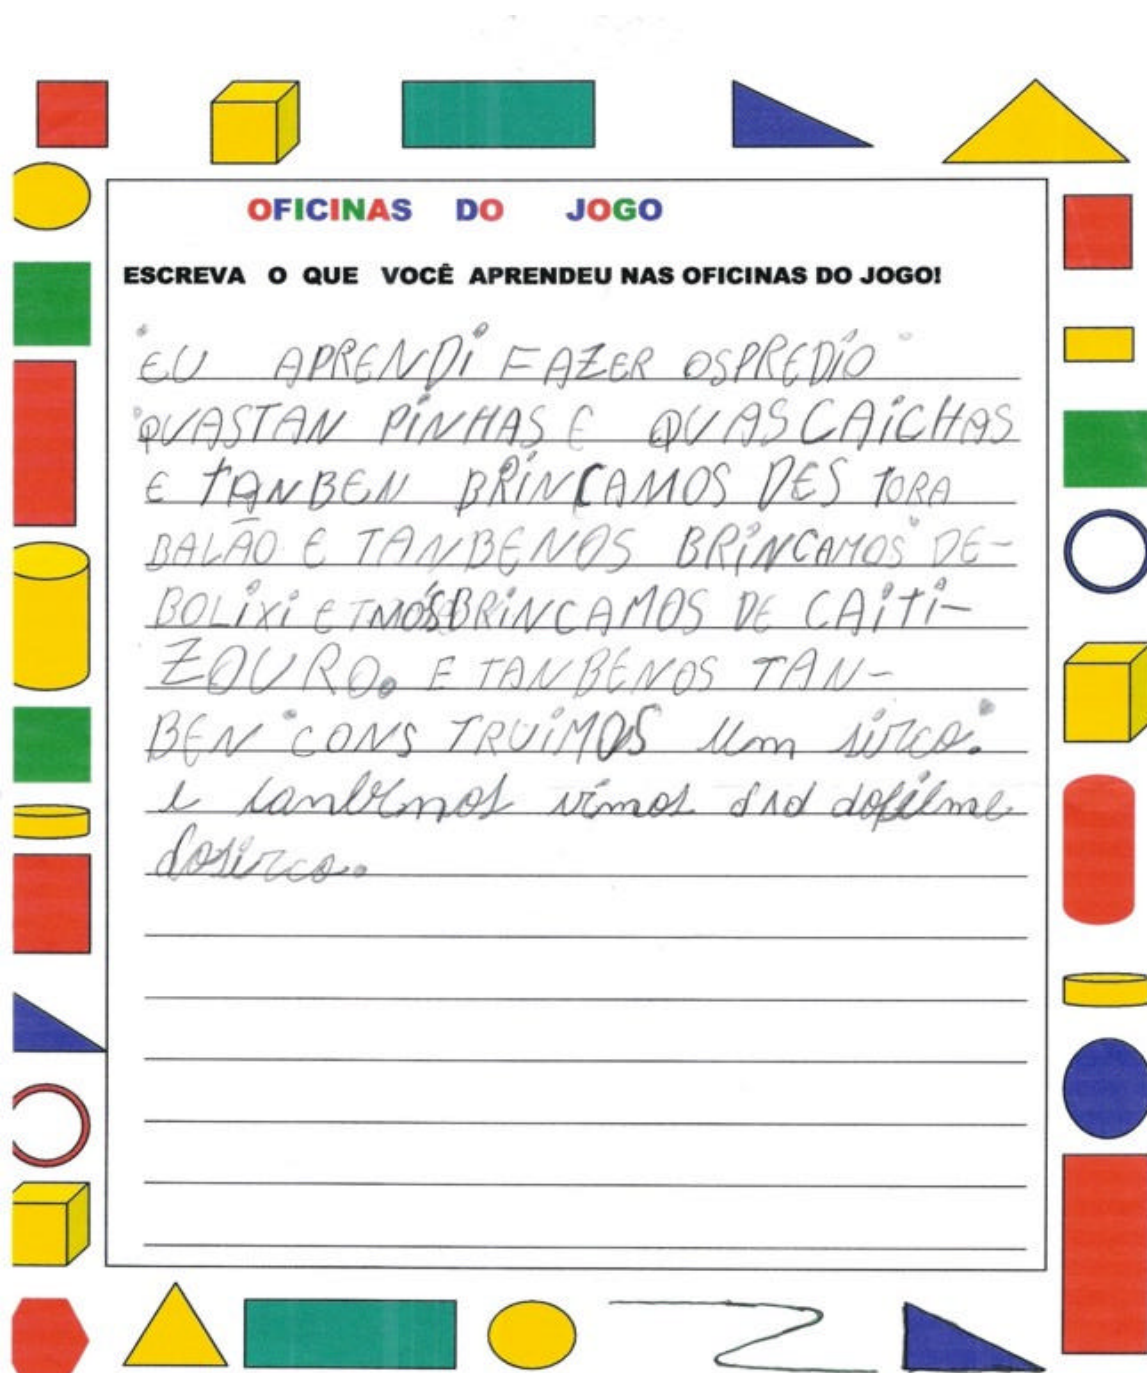 OFICINAS DO JOGO
ESCREVA O QUE VOCÊ APRENDEU NAS OFICINAS DO JOGO!
EU APRENDI FAZER OSPREDIO
QUASTAN PINHAS E QUASCAICHAS
E TANBEN BRINCAMOS DES TORA
BALÃO E TANBENOS BRINCAMOS DE-
BOLIXI E NÓS BRINCAMOS DE CAITI-
ZOURO. E TANBENOS TAN-
BEN CONS TRUIMOS um sirco.
e tanbemos vimos dofilme
dosirco.